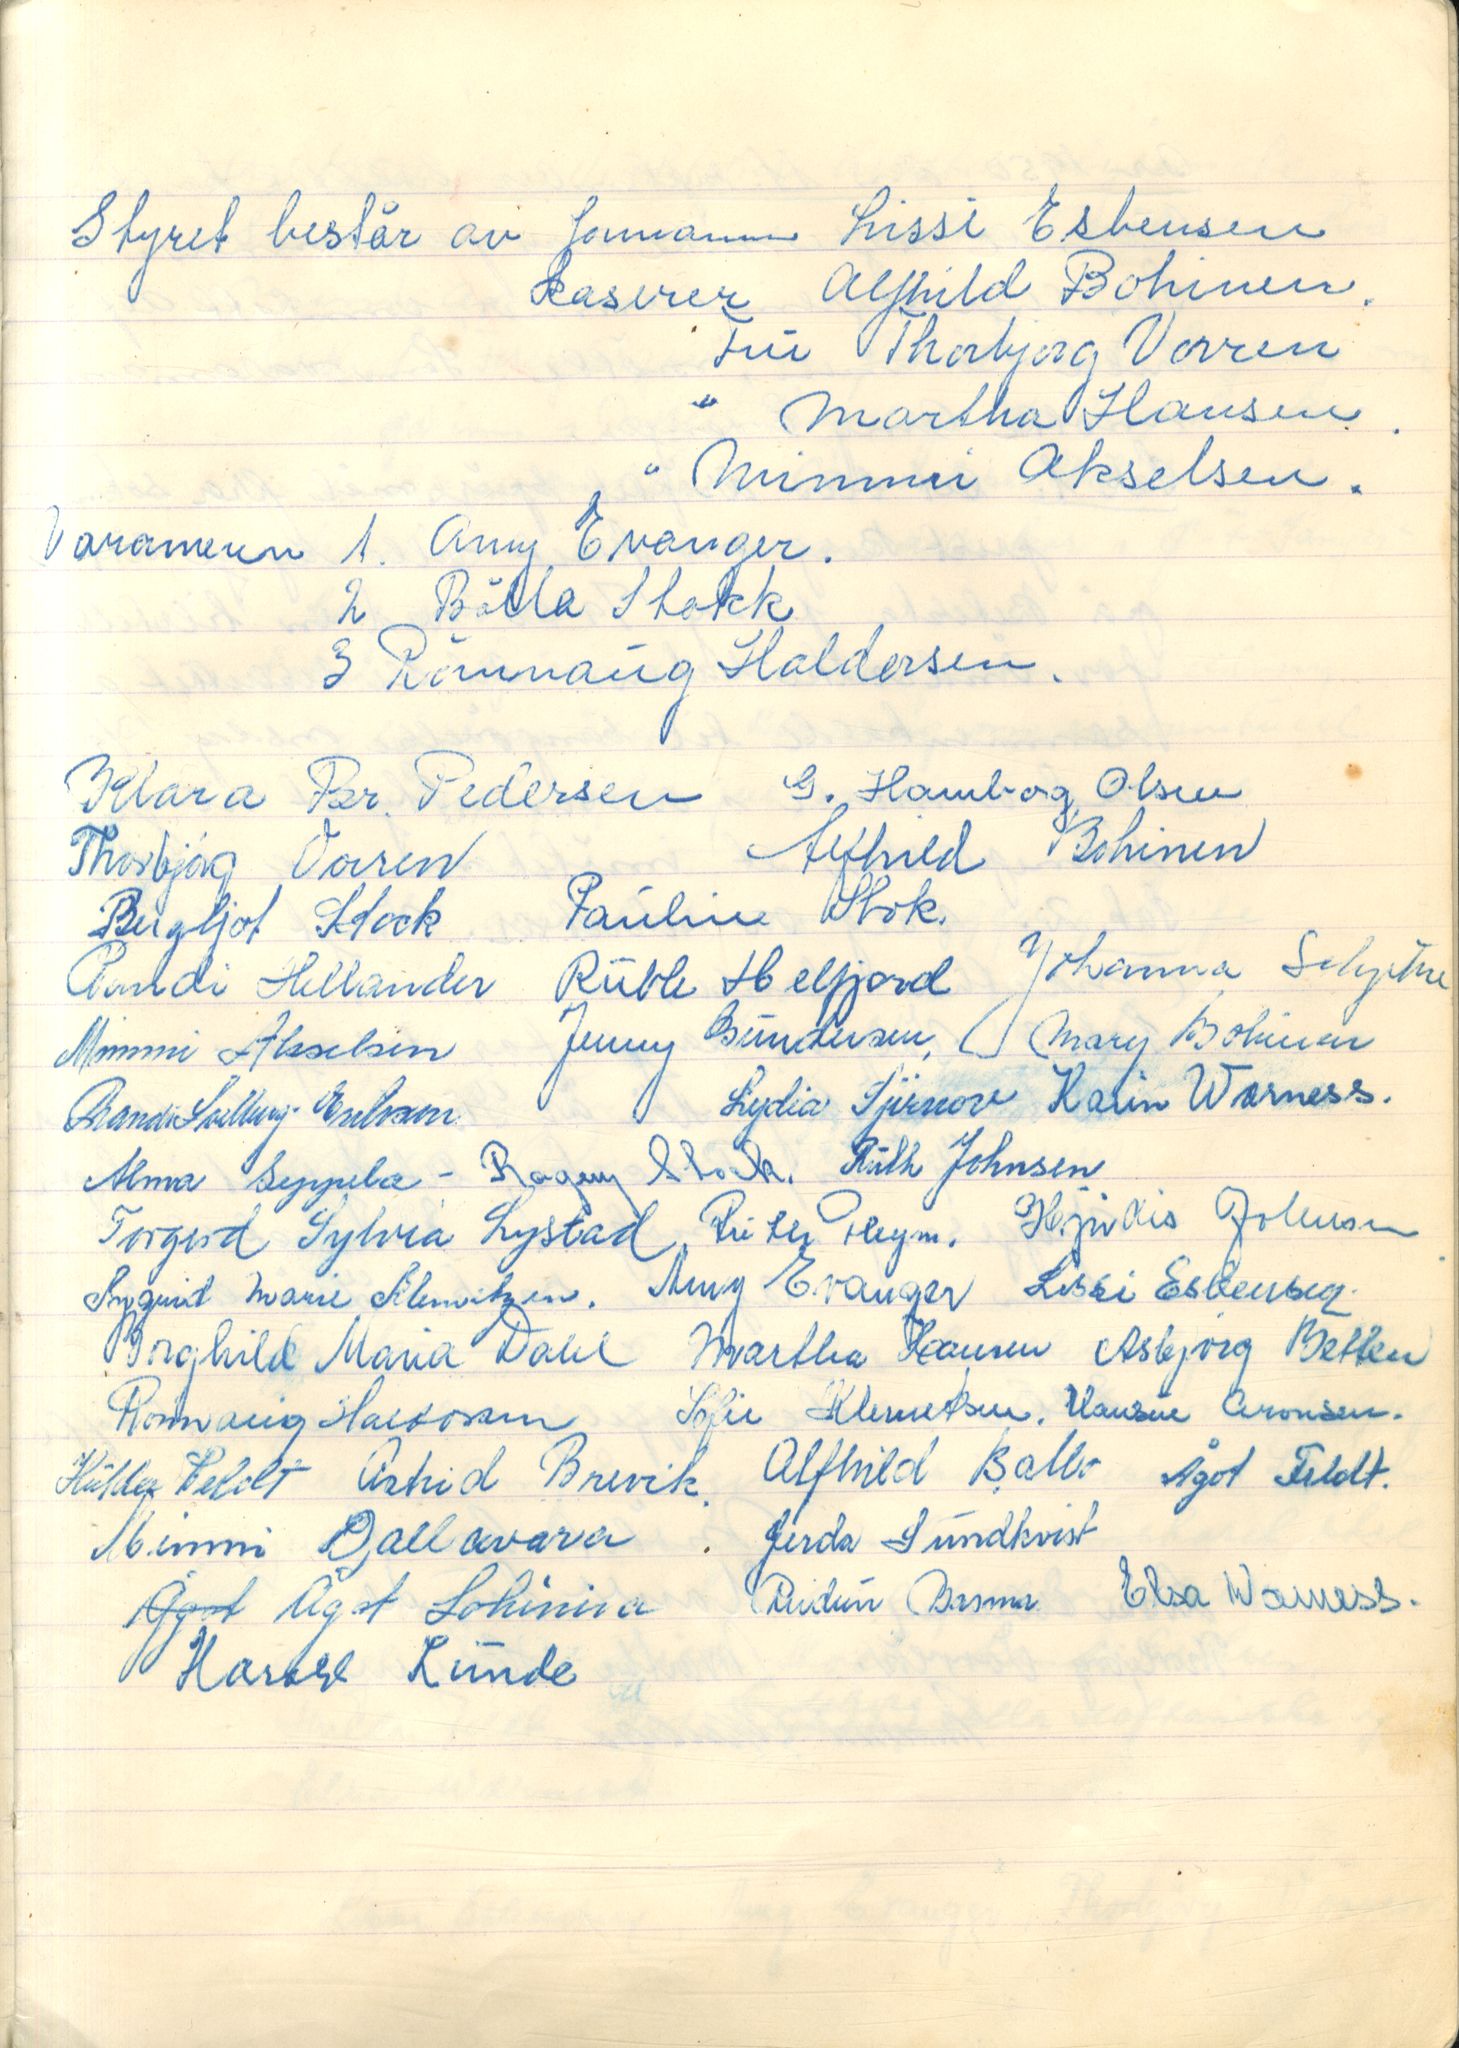 Styret består av formann Lissi Esbensen
Kaserer Alfhild Bohinen.
Frü Thorbjørg Vorren
" Martha Hansen.
" Mimmi Akselsen.
Varamenn 1. Amy Evanger.
2 Bölla Stokk
3 Rönnaüg Haldorsen.
Klara Per. Pedersen G. Hamborg Olsen
Thorbjørg Vorren Alfhild Bohinen
Bergljot Stock Paüline Stok.
Randi Hellander Helfjord Johanna
Mimmi Akselsen Jenny Gündersen, Mary Bohinen
Randi Lydia Karin Warness.
Alma Seppela - Ragny Stock. Rüth Johnsen
Torgerd Sylvia Lystad Hjørdis Johnsen
Marie Amy Evanger Lissi Esbensen
Borghild Maria Dahl Martha Hansen Asbjørg Betten
Ronnaüg Haldorsen Sofie Klemetsen. Hansine Aronsen.
Hülda Feldt Astrid Brevik. Alfhild Ballo Ågot Feldt.
Mimmi Dallavara Jerda Sündkvist
Ågot Ågot Lohiniva Reidün Basma Elsa Warness.
Lünde